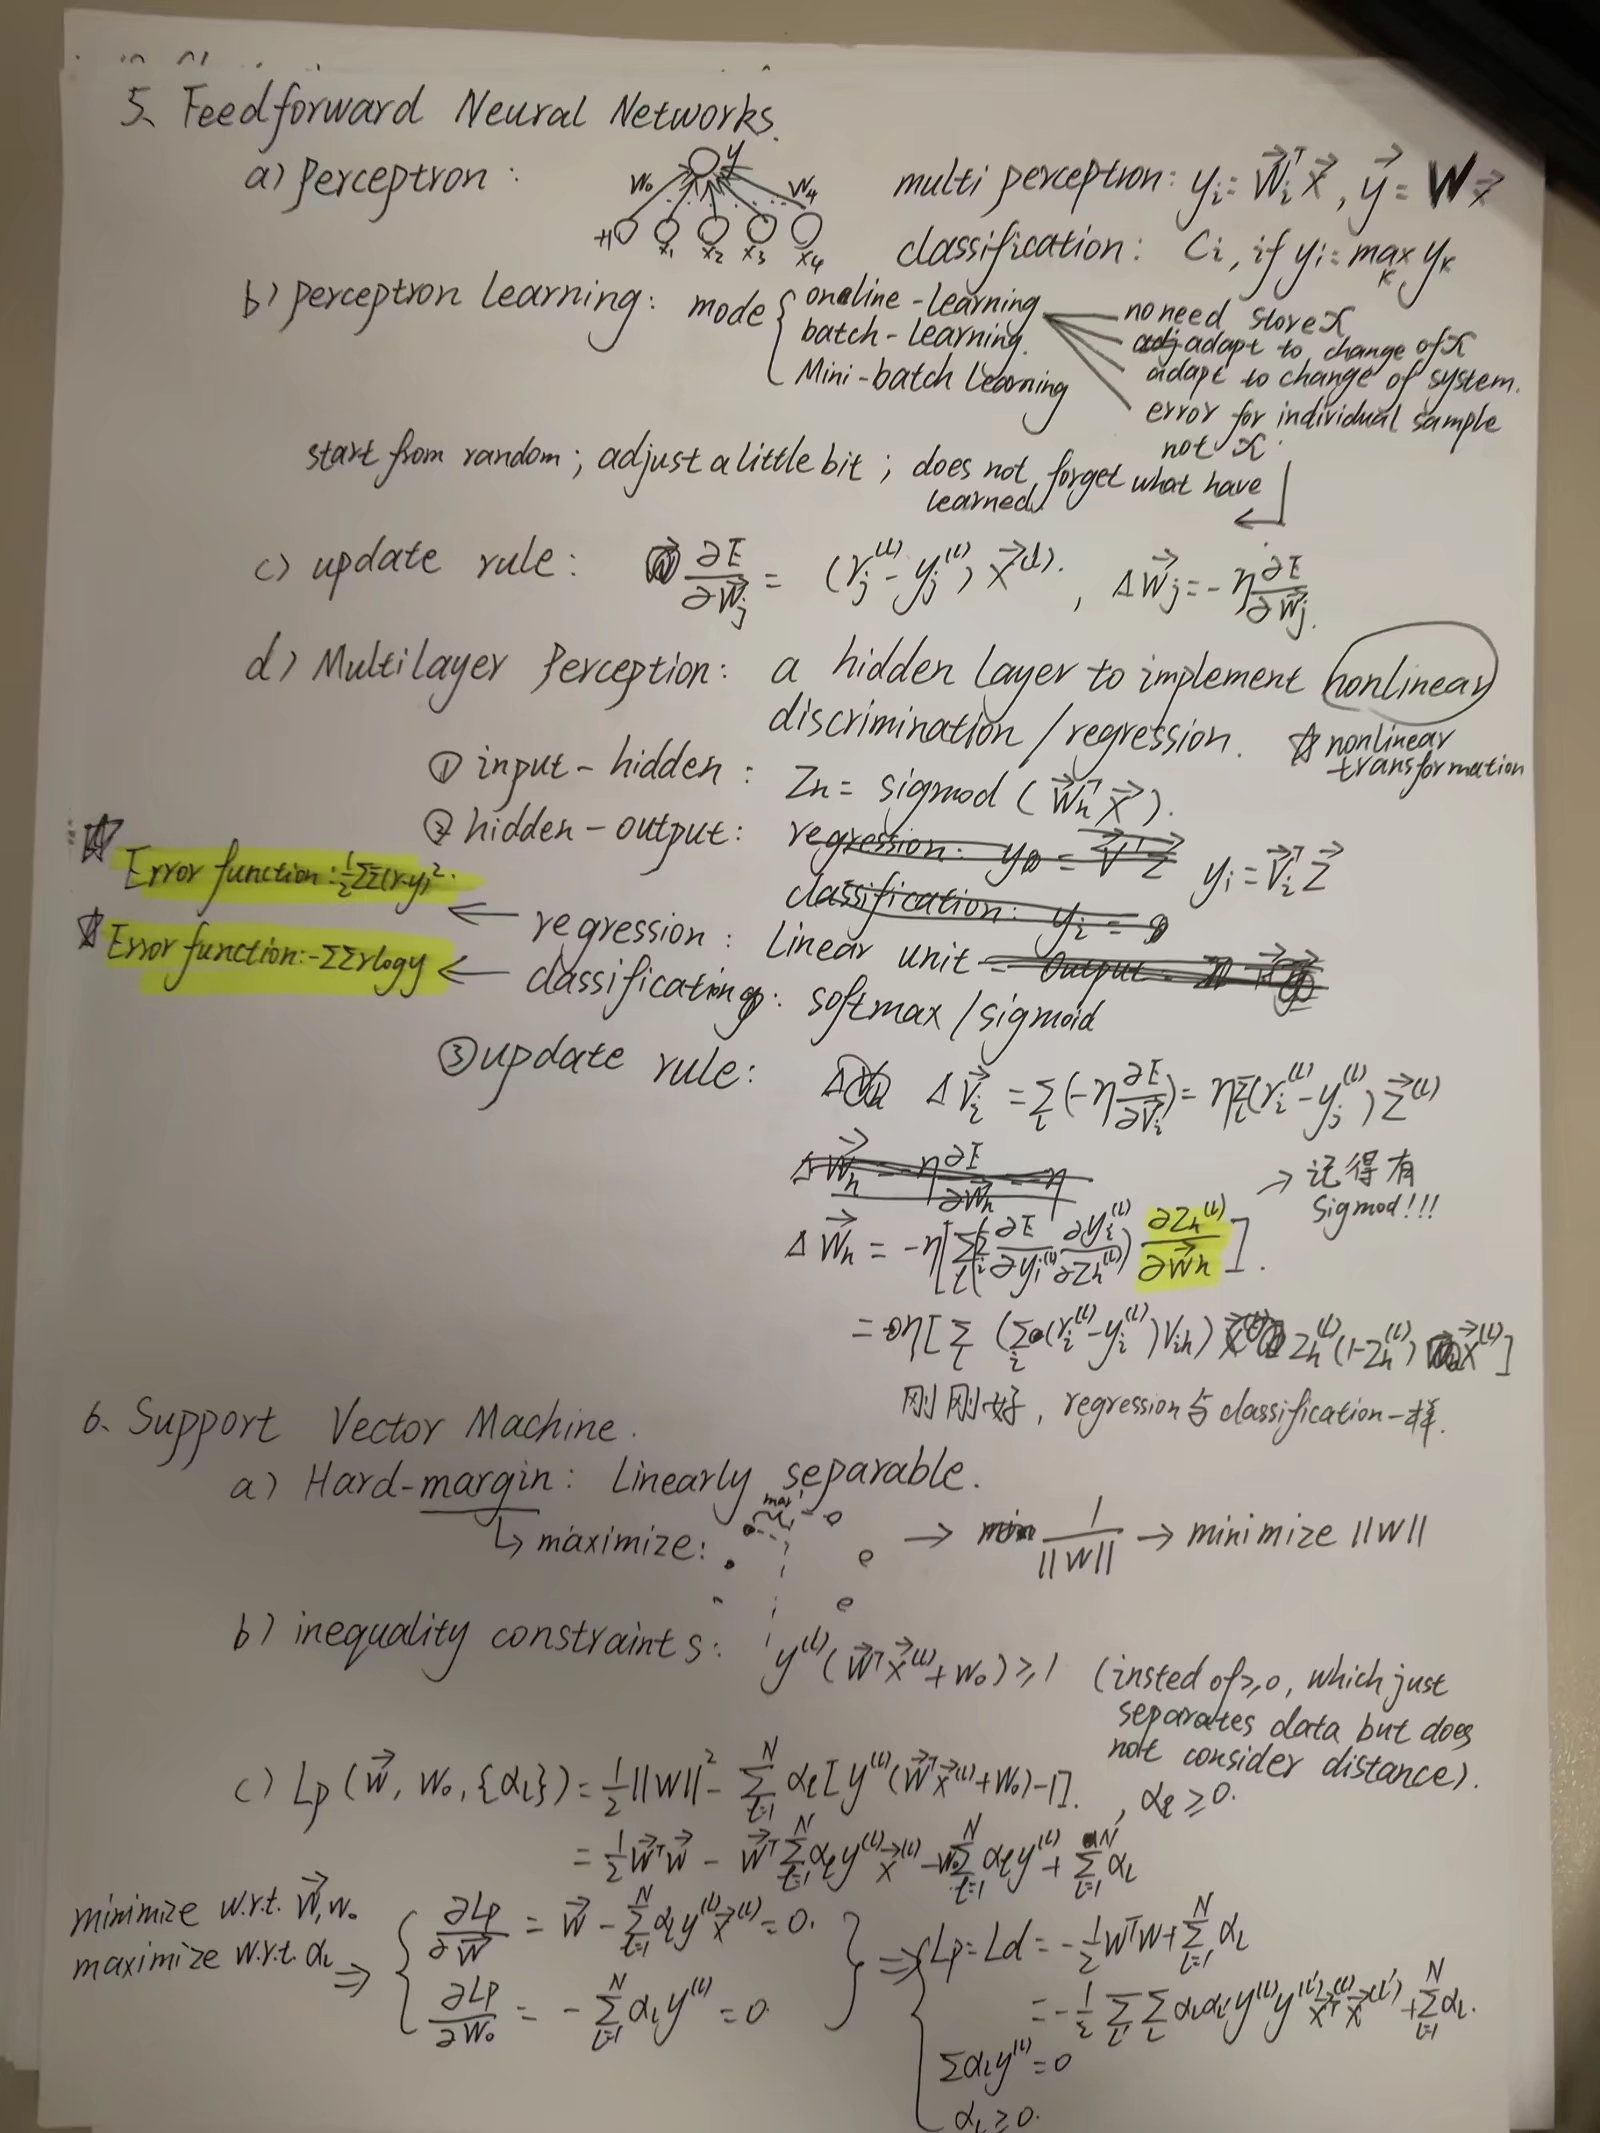 5、Feedforward Neural Networks.
a) perceptron :
y
W₀ W₄
+1 x₁ x₂ x₃ x₄
multi perception: yᵢ = W⃗ᵢᵀX⃗, y⃗ = W x⃗
classification: Cᵢ, if yᵢ = max_k y_k
b) perceptron learning: mode { online-learning
batch-learning
Mini-batch learning
no need store X
adapt to change of X
adapt to change of system.
error for individual sample
not X
start from random ; adjust a little bit ; does not forget what have
learned
c) update rule : ∂E/∂W⃗ⱼ = (rⱼ⁽ˡ⁾ - yⱼ⁽ˡ⁾) X⃗⁽ˡ⁾. , ΔW⃗ⱼ = -η ∂E/∂W⃗ⱼ.
d) Multilayer Perception : a hidden layer to implement nonlinear
discrimination / regression. ☆ nonlinear
transformation
① input-hidden : Zₕ = sigmod (W⃗ₕᵀX⃗).
② hidden-output : yᵢ = V⃗ᵢᵀZ⃗
☆ Error function: ½ΣΣ(r-y)².
← regression : Linear unit
☆ Error function: -ΣΣrlogy
← classification : softmax / sigmoid
③ update rule : ΔV⃗ᵢ = Σ_l (-η ∂E/∂V⃗ᵢ) = ηΣ_l (rᵢ⁽ˡ⁾ - yⱼ⁽ˡ⁾) Z⃗⁽ˡ⁾
→ 记得有
sigmod!!!
ΔW⃗ₕ = -η[Σ_l (Σᵢ ∂E/∂yᵢ⁽ˡ⁾ ∂yᵢ⁽ˡ⁾/∂Zₕ⁽ˡ⁾) ∂Zₕ⁽ˡ⁾/∂W⃗ₕ].
= η[Σ_l (Σᵢ (rᵢ⁽ˡ⁾ - yᵢ⁽ˡ⁾) Vᵢₕ) Zₕ⁽ˡ⁾ (1-Zₕ⁽ˡ⁾) X⃗⁽ˡ⁾]
刚刚好, regression与classification一样.
6、Support Vector Machine.
a) Hard-margin : Linearly separable.
↳ maximize: → 1/||W|| → minimize ||W||
b) inequality constraints : y⁽ˡ⁾(W⃗ᵀX⃗⁽ˡ⁾ + W₀) ≥ 1 (insted of ≥0, which just
separates data but does
not consider distance).
c) Lp (w⃗, W₀, {αₗ}) = ½||W||² - Σ_{l=1}^N αₗ[y⁽ˡ⁾(W⃗ᵀX⃗⁽ˡ⁾ + W₀) - 1]. , αₗ ≥ 0.
= ½W⃗ᵀw⃗ - W⃗ᵀ Σ_{l=1}^N αₗy⁽ˡ⁾X⃗⁽ˡ⁾ - W₀ Σ_{l=1}^N αₗy⁽ˡ⁾ + Σ_{l=1}^N αₗ
minimize w.r.t. W⃗, w₀
maximize w.r.t. αₗ ⇒
{ ∂Lp/∂W⃗ = W⃗ - Σ_{l=1}^N αₗy⁽ˡ⁾X⃗⁽ˡ⁾ = 0.
∂Lp/∂W₀ = - Σ_{l=1}^N αₗy⁽ˡ⁾ = 0 }
⇒ { Lp = Ld = -½WᵀW + Σ_{l=1}^N αₗ
= -½ Σ_l' Σ_l αₗαₗ' y⁽ˡ⁾y⁽ˡ'⁾ X⃗ᵀ⁽ˡ⁾X⃗⁽ˡ'⁾ + Σ_{l=1}^N αₗ.
Σαₗy⁽ˡ⁾ = 0
αₗ ≥ 0.